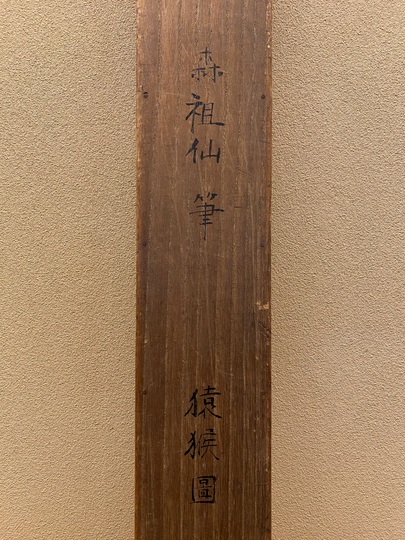 森祖仙筆
猿猴圖